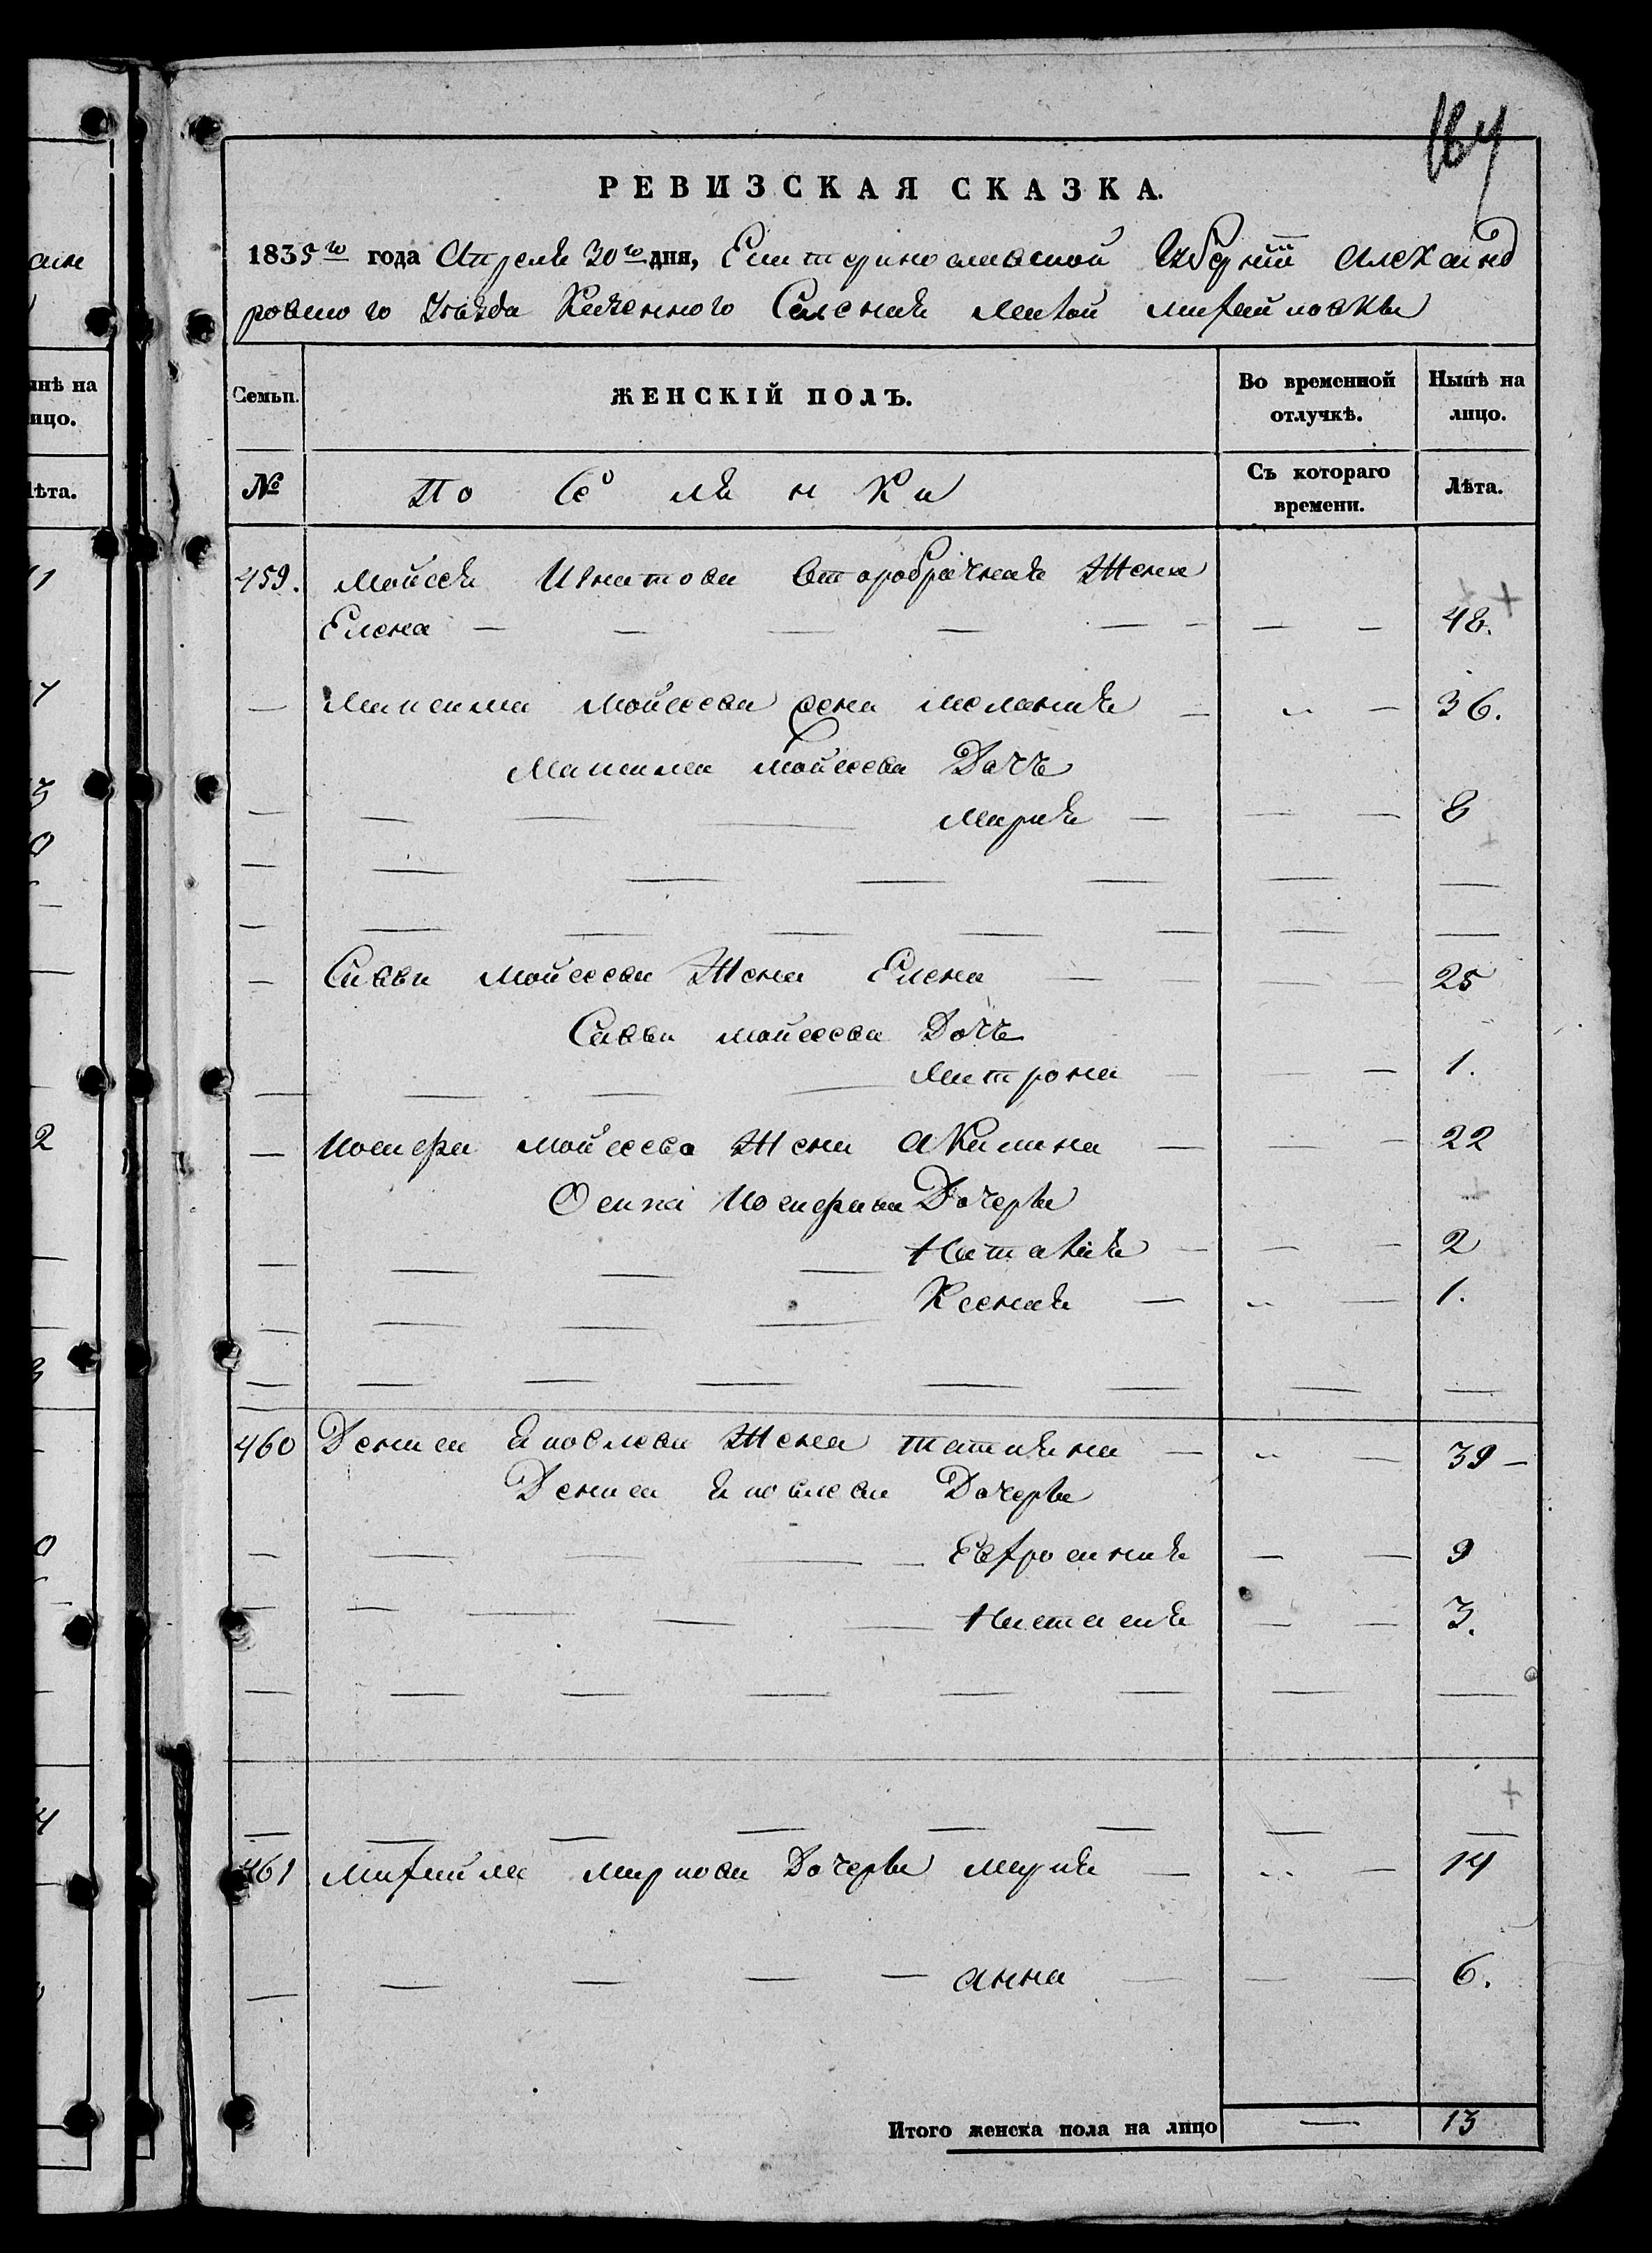 164
РЕВИЗСКАЯ СКАЗКА.
1835го года Апреля 30го дня, Екатеринославской Губернiи Александ
ровского Уѣзда Казенного Селения Малой Михайловки
Семьи. ЖЕНСКІЙ ПОЛЪ. Во временной отлучкѣ. Нынѣ на лицо.
№ Поселянки Съ котораго времени. Лѣта.
459. Мойсея Игнатова второбрачная Жена
Елена — — — — — — — — 48.
— Максима Мойсеева жена Мелания — — 36.
Максима Мойсеева Дочь
— — — — Мария — — — 8
Саввы Мойсеева Жена Елена — — — — 25
Саввы Мойсеева Дочь
— — — — Матрона — — — 1.
— Иосифа Мойсеева Жена Акилина — — — 22
Осипа Иосифова Дочери
— — — — Наталия — — — 2
— — — — Ксения — — 1.
460 Дениса Яковлева Жена Татияна — — 39 —
Дениса Яковлева Дочери
— — — — — Евфросиния — — 9
— — — — — Настасия — — 3.
461 Михайла Маркова Дочери Мария — — 14
— — — — — Анна — — — 6.
Итого женска пола на лицо — 13
анѣ на
ицо.
лѣта.